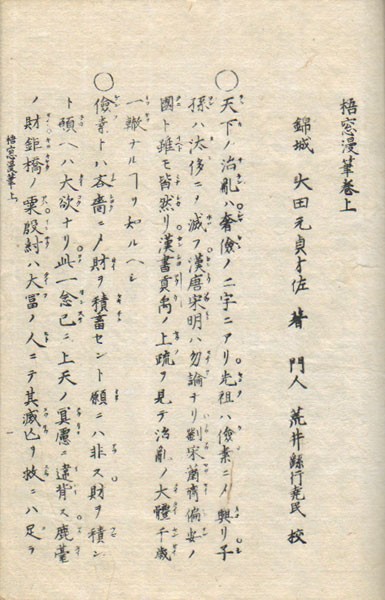 梧窓漫筆巻上
錦城 大田元貞才佐 著 門人 荒井繇行堯民 校
○天下ノ治亂ハ奢儉ノ二字ニアリ先祖ハ儉素ニメ興リ子
孫ハ汰侈ニメ滅フ漢唐宋明ハ勿論ナリ劉宋蕭齊偏安ノ
國ト雖モ皆然リ漢書貢禹ノ上疏ヲ見テ治亂ノ大體千歳
一轍ナルヿヲ知ルヘシ
○儉素トハ吝嗇ニメ財ヲ積畜セント願ニハ非ス財ヲ積ン
ト願ヘハ大欲ナリ此一念已ニ上天ノ冥慮ニ違背ス鹿臺
ノ財鉅橋ノ粟殷紂ハ大冨ノ人ニテ其滅亡ヲ救ニハ足ラ
梧窓漫筆上
一